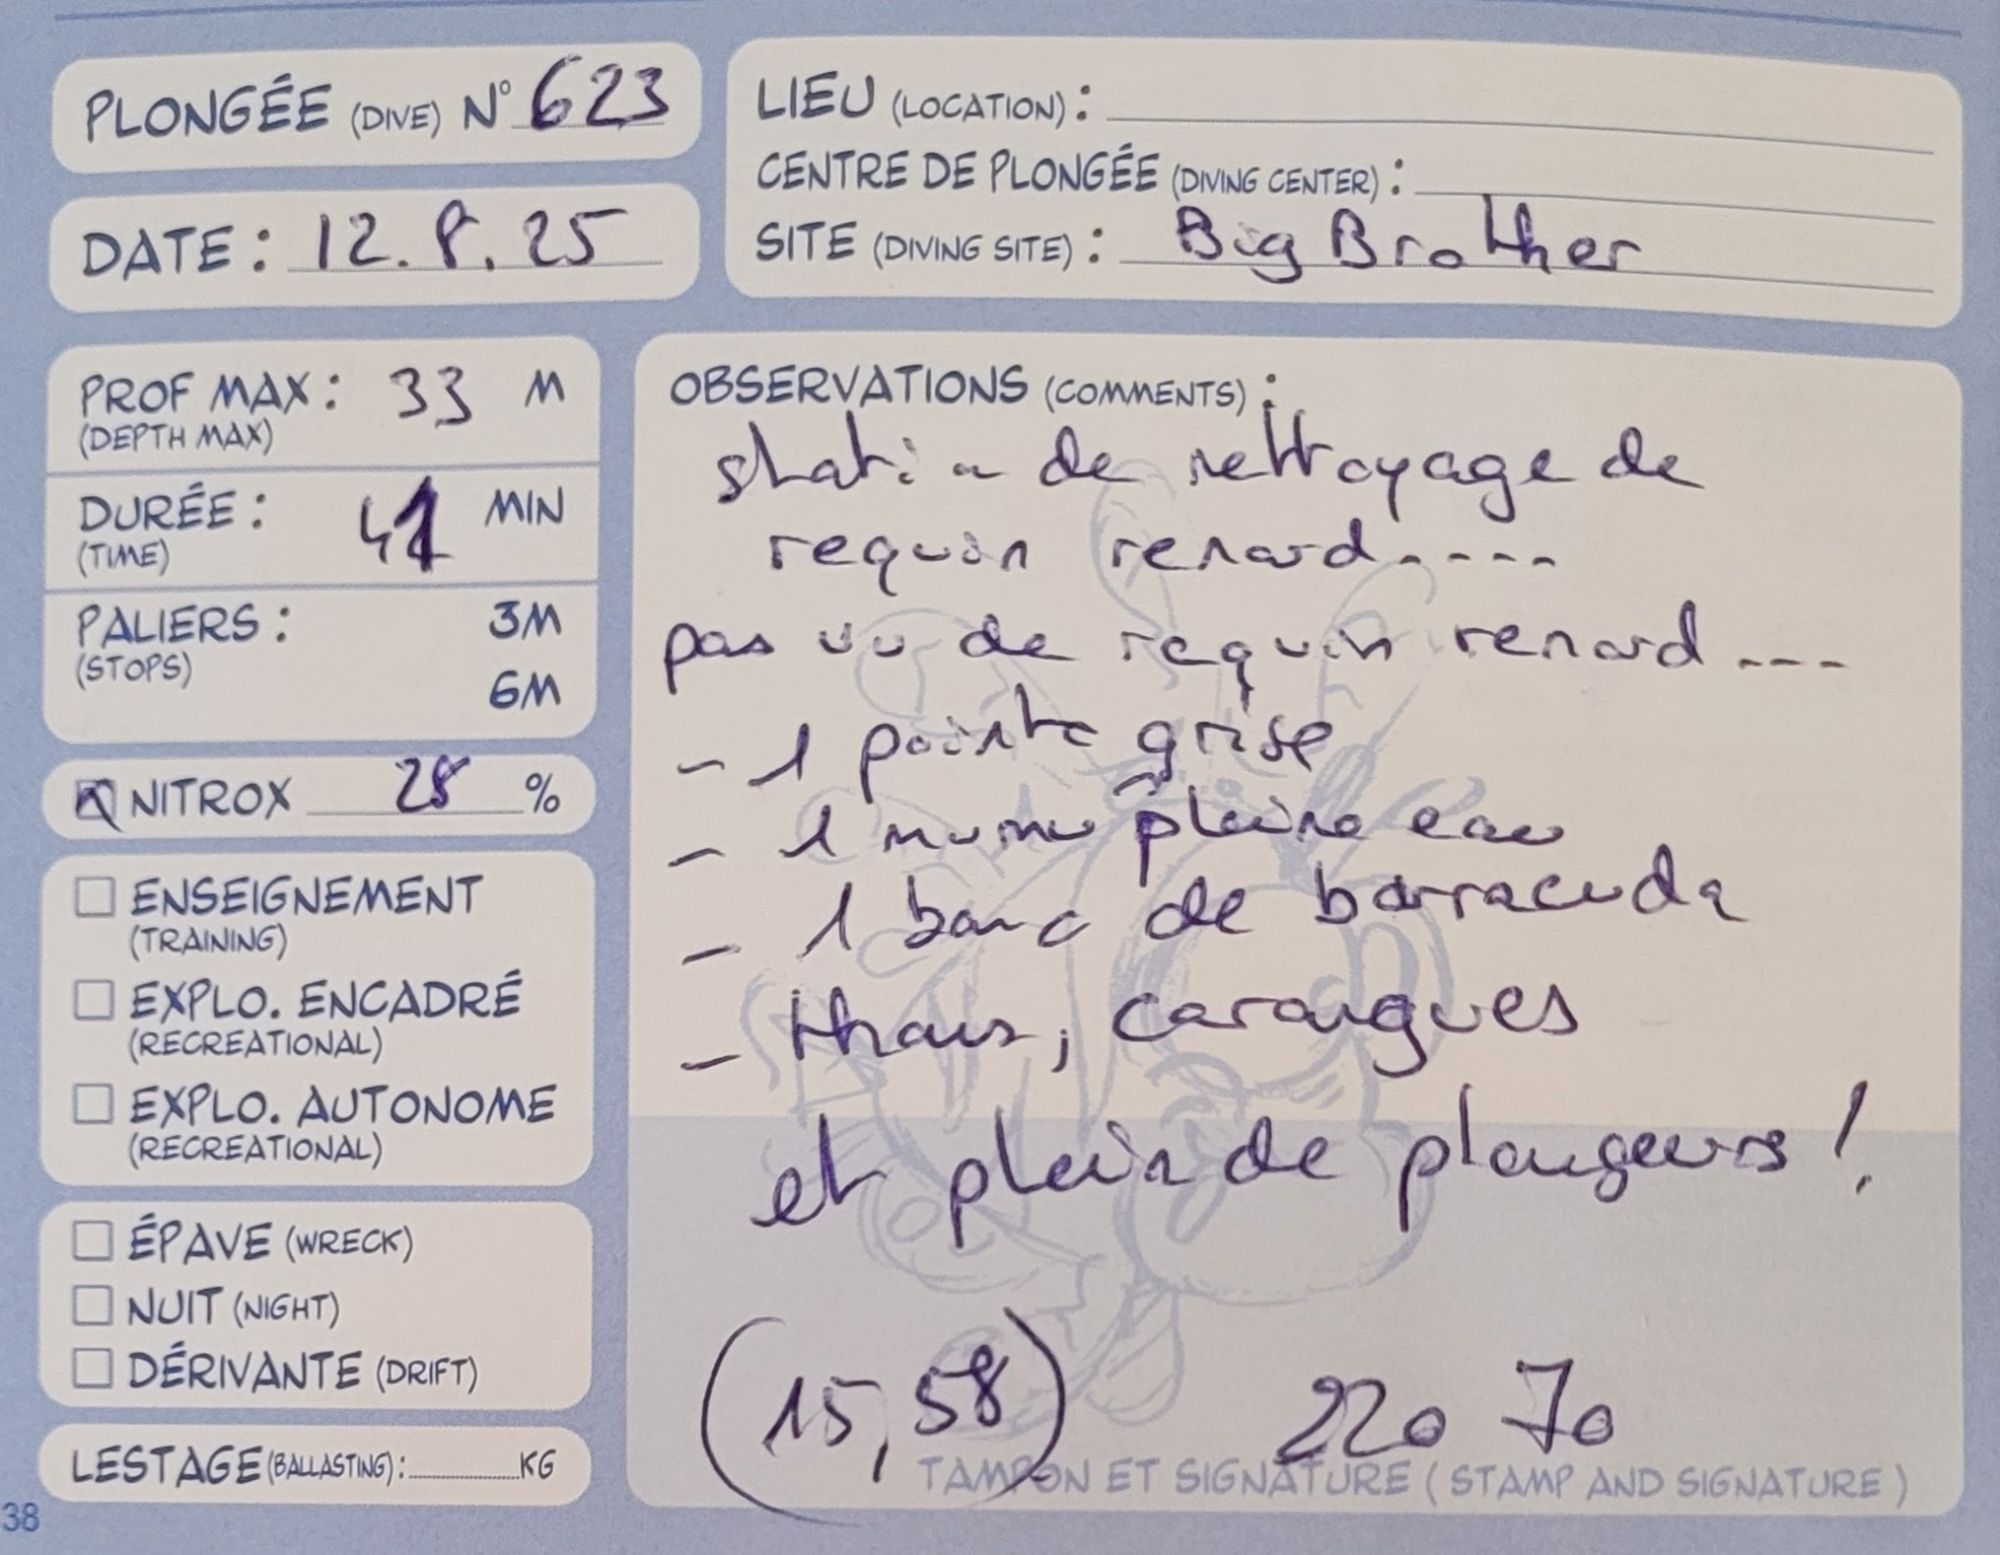 PLONGÉE (DIVE) N° 623
DATE : 12.8.25
LIEU (LOCATION) :
CENTRE DE PLONGÉE (DIVING CENTER) :
SITE (DIVING SITE) : Big Brother
PROF MAX : 33 M
(DEPTH MAX)
DURÉE : 41 MIN
(TIME)
PALIERS : 3M
(STOPS)
6M
NITROX 28 %
ENSEIGNEMENT
(TRAINING)
EXPLO. ENCADRÉ
(RECREATIONAL)
EXPLO. AUTONOME
(RECREATIONAL)
ÉPAVE (WRECK)
NUIT (NIGHT)
DÉRIVANTE (DRIFT)
LESTAGE (BALLASTING) : KG
38
OBSERVATIONS (COMMENTS) :
station de nettoyage de
requin renard....
pas vu de requin renard ---
- 1 pointe grise
- 1 pleine eau
- 1 banc de barracuda
- thons, carangues
et plein de plongeurs !
(15,58) 220 70
TAMPON ET SIGNATURE (STAMP AND SIGNATURE)